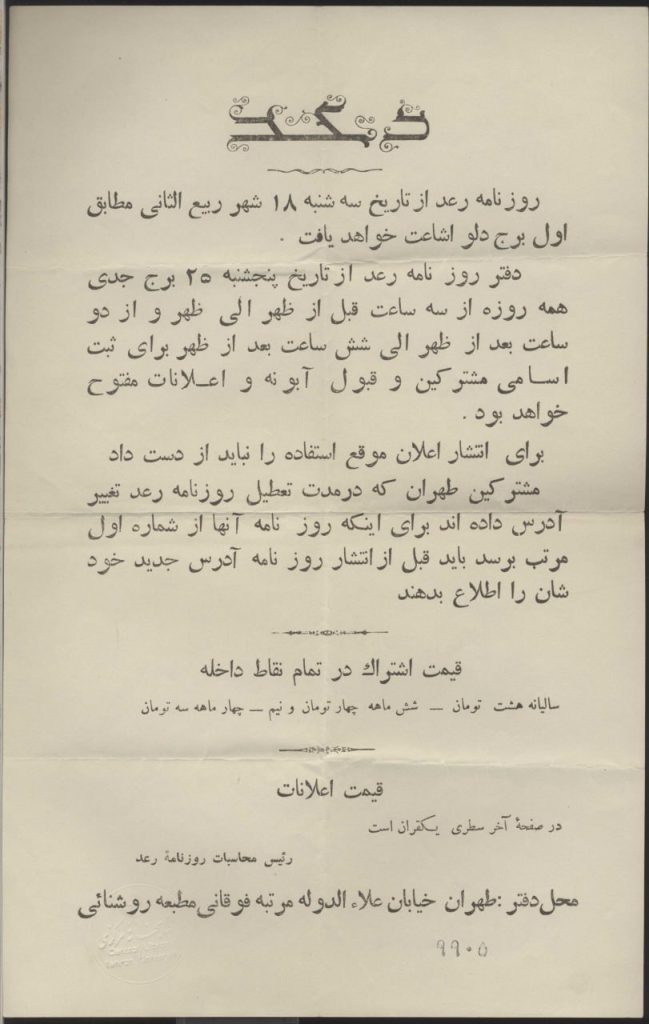 رعد
روزنامه رعد از تاریخ سه شنبه ۱۸ شهر ربیع الثانی مطابق
اول برج دلو اشاعت خواهد یافت .
دفتر روز نامه رعد از تاریخ پنجشنبه ۲۵ برج جدی
همه روزه از سه ساعت قبل از ظهر الی ظهر و از دو
ساعت بعد از ظهر الی شش ساعت بعد از ظهر برای ثبت
اسامی مشترکین و قبول آبونه و اعلانات مفتوح
خواهد بود .
برای انتشار اعلان موقع استفاده را نباید از دست داد
مشترکین طهران که درمدت تعطیل روزنامه رعد تغییر
آدرس داده اند برای اینکه روز نامه آنها از شماره اول
مرتب برسد باید قبل از انتشار روز نامه آدرس جدید خود
شان را اطلاع بدهند
قیمت اشتراك در تمام نقاط داخله
سالیانه هشت تومان — شش ماهه چهار تومان و نیم — چهار ماهه سه تومان
قیمت اعلانات
در صفحهٔ آخر سطری یکقران است
رئیس محاسبات روزنامهٔ رعد
محل دفتر : طهران خیابان علاء الدوله مرتبه فوقانی مطبعه روشنائی
۹۹۰۵